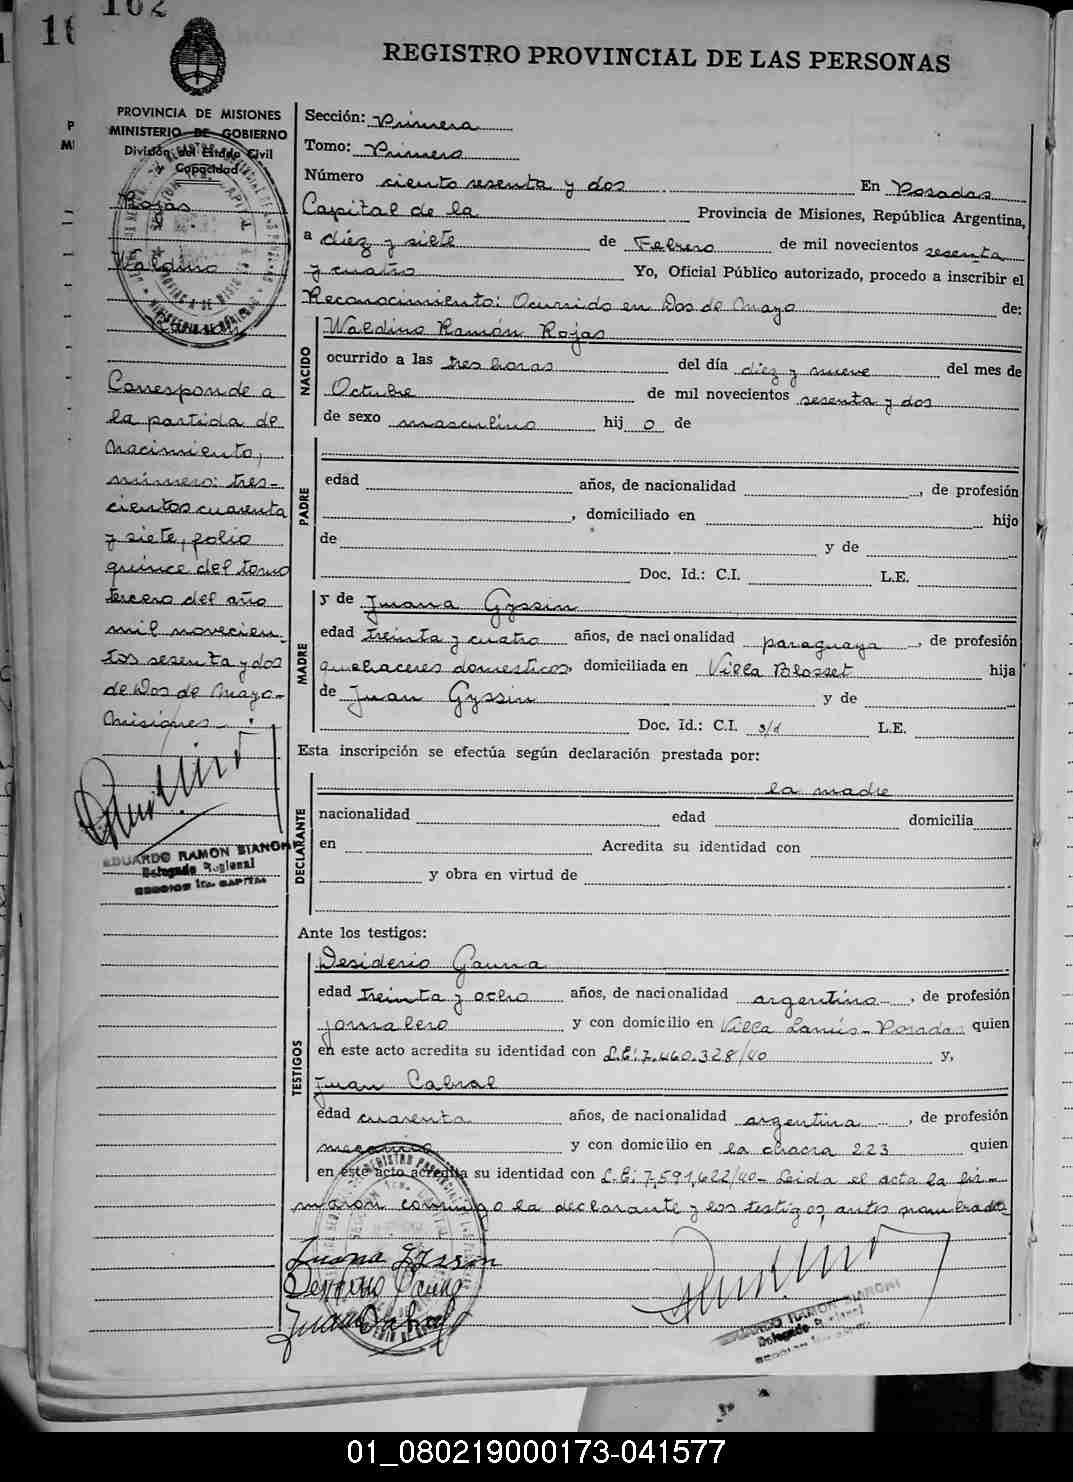 162
REGISTRO PROVINCIAL DE LAS PERSONAS
PROVINCIA DE MISIONES
MINISTERIO DE GOBIERNO
División del Estado Civil
y Capacidad
Rojas
Waldino
Ramón
Corresponde a
la partida de
nacimiento,
número: tres-
cientos cuarenta
y siete, folio
quince del tomo
tercero del año
mil novecien-
tos sesenta y dos
de Dos de Mayo-
Misiones
EDUARDO RAMON BIANCHI
Delegado Regional
SECCION 1ra. CAPITAL
Sección: Primera
Tomo: Primero
Número ciento sesenta y dos En Posadas
Capital de la Provincia de Misiones, República Argentina,
a diéz y siete de Febrero de mil novecientos sesenta
y cuatro Yo, Oficial Público autorizado, procedo a inscribir el
Reconocimiento: Ocurrido en Dos de Mayo de:
NACIDO
Waldino Ramón Rojas
ocurrido a las tres horas del día diéz y nueve del mes de
Octubre de mil novecientos sesenta y dos
de sexo masculino hij o de
PADRE
edad años, de nacionalidad , de profesión
, domiciliado en hijo
de y de
Doc. Id.: C.I. L.E.
MADRE
y de Juana Gyssin
edad treinta y cuatro años, de nacionalidad paraguaya , de profesión
quehaceres domesticos, domiciliada en Villa Blosset hija
de Juan Gyssin y de
Doc. Id.: C.I. s/d L.E.
Esta inscripción se efectúa según declaración prestada por:
DECLARANTE
la madre
nacionalidad edad domicilia
en Acredita su identidad con
y obra en virtud de
Ante los testigos:
TESTIGOS
Desiderio Gauna
edad treinta y ocho años, de nacionalidad argentino , de profesión
jornalero y con domicilio en Villa Lanús-Posadas quien
en este acto acredita su identidad con L.E: 7.460.328/40 y,
Juan Cabral
edad cuarenta años, de nacionalidad argentina , de profesión
mecanico y con domicilio en la chacra 223 quien
en este acto acredita su identidad con L.E: 7,591,622/40- Leida el acta la fir-
maron conmigo la declarante y los testigos, antes nombrados
Juana Gyssin
Desiderio Gauna
Juan Cabral
EDUARDO RAMON BIANCHI
Delegado Regional
01_080219000173-041577